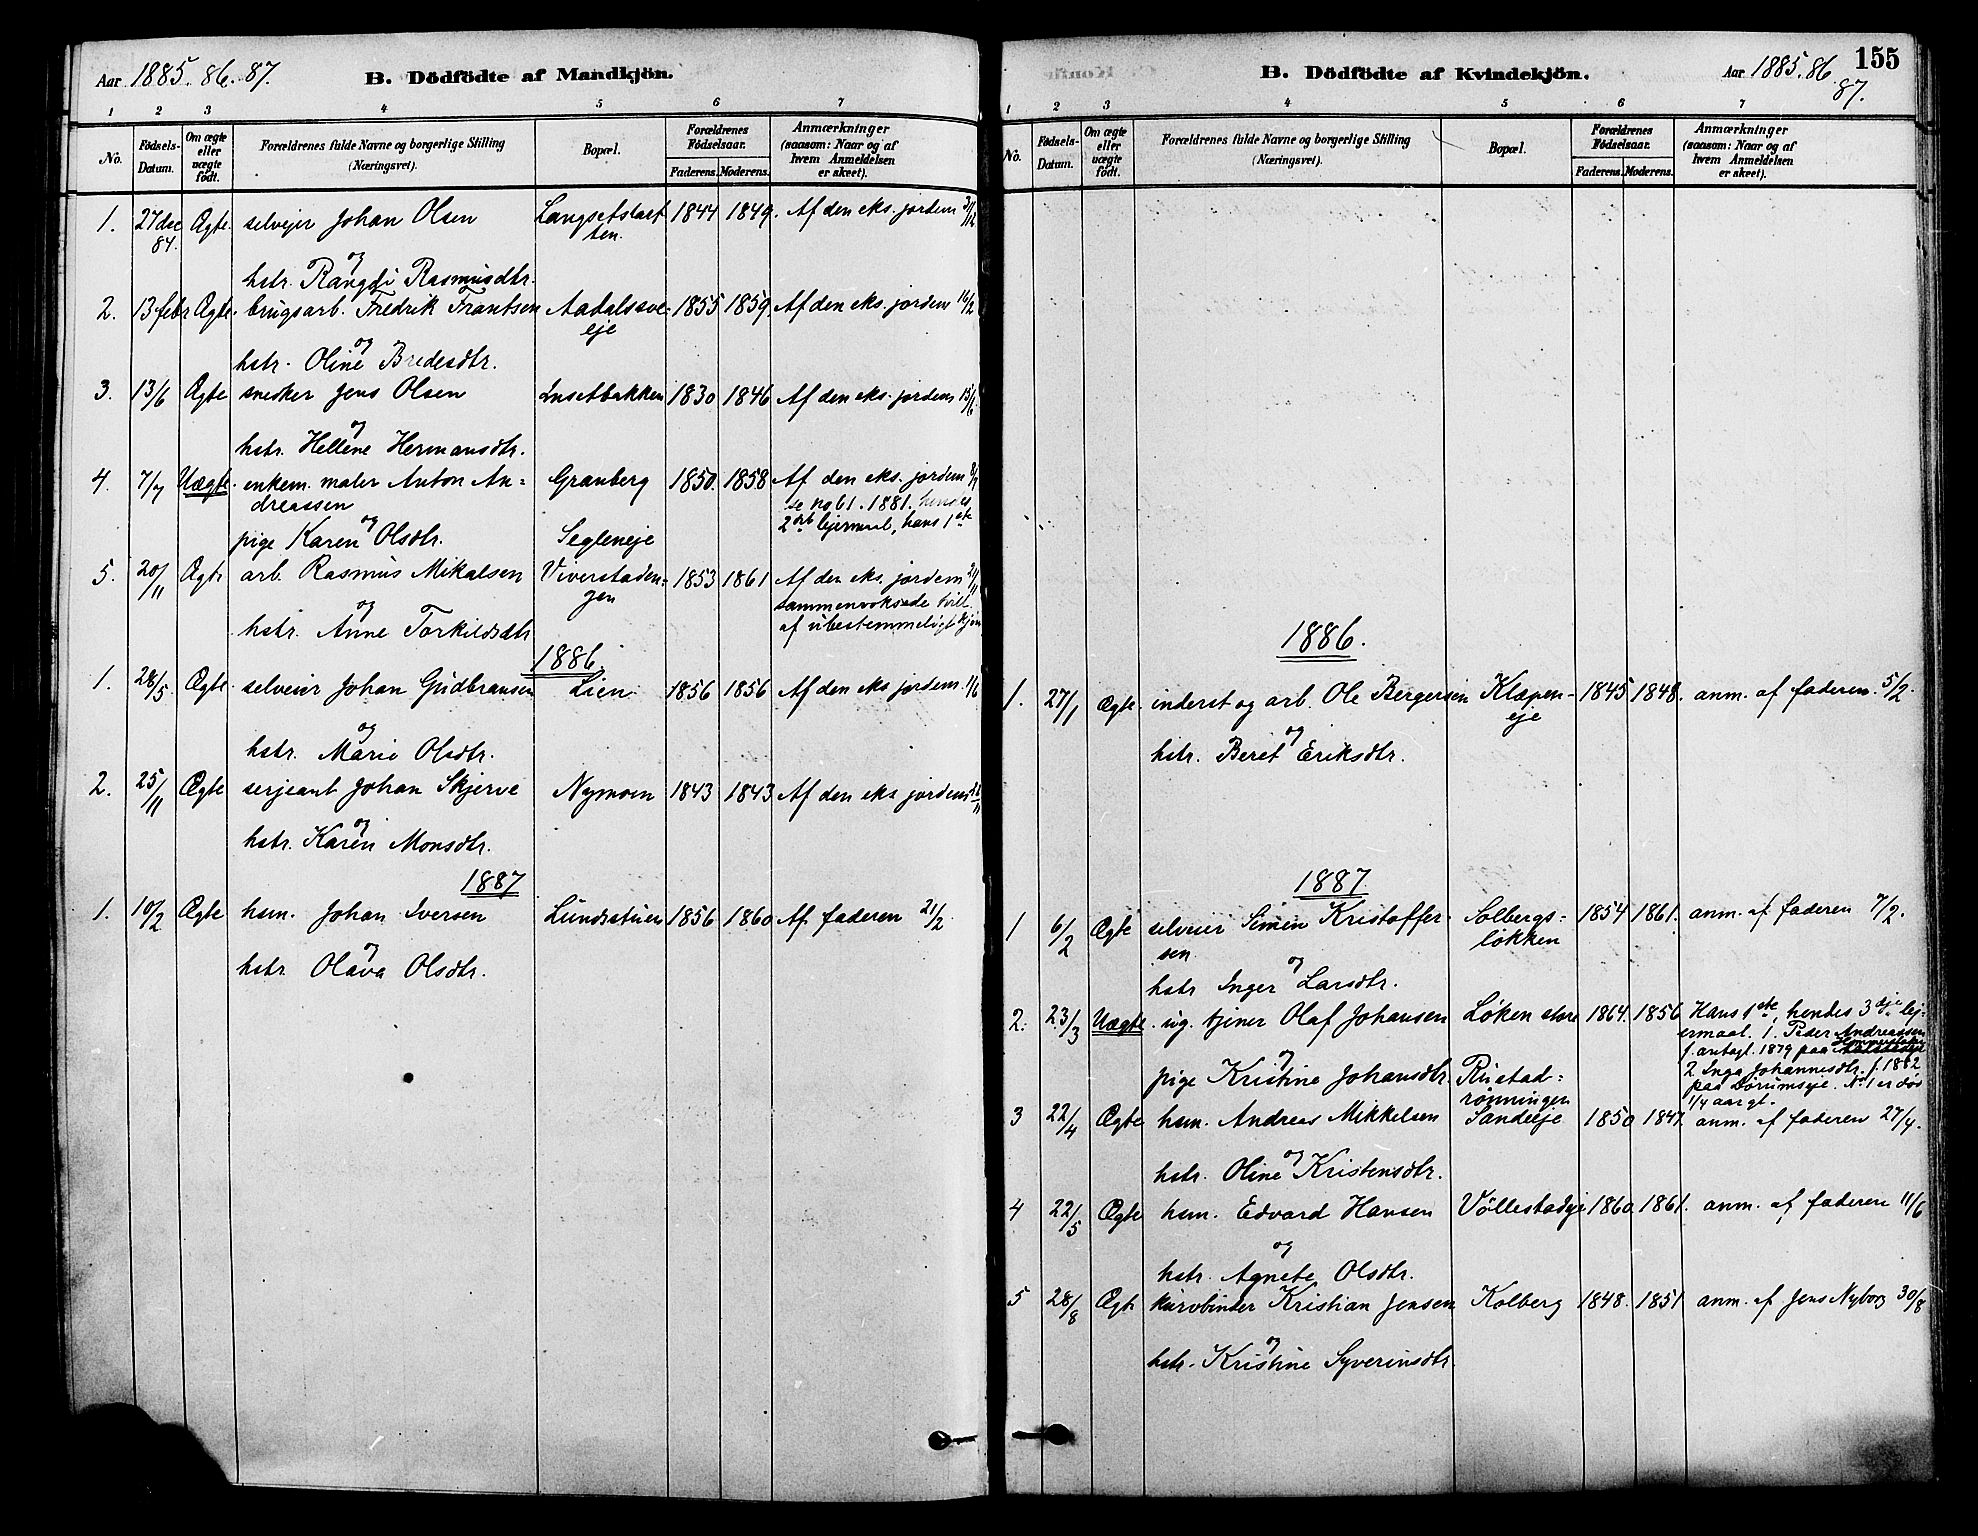 Aar 1885. 86. 87.
B. Dödfödte af Mandkjön.
1 2 3 4 5 6 7
No. Fødsels-Datum. Om ægte eller uægte födt. Forældrenes fulde Navne og borgerlige Stilling (Næringsvei). Bopæl. Forældrenes Födselsaar. Faderens. Moderens. Anmærkninger (saasom: Naar og af hvem Anmeldelsen er skeet).
1. 27 dec 84. Ægte. selvejer Johan Olsen 1844 1849. Af den eks. jordem 3/12
og
hstr. Rangdi Rasmusdtr.
2. 13 febr Ægte. brugsarb. Fredrik Frantsen 1855 1859. Af den eks. jordem 16/2
eje
og
hstr. Oline Bredesdtr.
3. 13/6 Ægte snedker Jens Olsen 1830 1846 Af den eks. jordem 15/6
og
hstr. Hellene Hermansdtr.
4. 7/7 Uægte. enkem. maler Anton An- Granberg 1850. 1858 Af den eks. jordem 8/7
dreassen se no 61. 1881. hendes
og 2det lejermaal, hans 1ste
pige Karen Olsdtr. Segleneje
5. 20/11 Ægte arb. Rasmus Mikalsen Viverstaden- 1853 1861 Af den eks. jordem 21/11
gen sammenvoksede tvill.
og af ubestemmeligt kjøn
hstr. Anne Torkildsdtr
1886.
1. 28/5. Ægte. selveier Johan Gudbransen Lien 1856 1856 Af den eks jordem. 1/6
og
hstr. Marie Olsdtr.
2. 25/11 Ægte serjeant Johan Skjerve Nymoen 1843 1843 Af den eks jordem
og
hstr. Karen Monsdtr.
1887
1. 10/2 Ægte hsm. Johan Iversen Lundsstuen 1856 1860 Af faderen 21/2
og
hstr Olava Olsdtr.
B. Dödfödte af Kvindekjön.
Aar 1885. 86.
87.
155
1 2 3 4 5 6 7
No. Födsels-Datum. Om ægte eller uægte födt. Forældrenes fulde Navne og borgerlige Stilling (Næringsvei). Bopæl. Forældrenes Fødselsaar. Faderens. Moderens. Anmærkninger (saasom: Naar og af hvem Anmeldelsen er skeet).
1886.
1. 27/1 Ægte. inderst og arb. Ole Bergersen Klæpen- 1845 1848. anm. af faderen. 5/2.
eje
og
hstr. Beret Eriksdtr.
1887
1 6/2 Ægte selveier Simen Kristoffer- Solbergs- 1854 1861. anm. af faderen 7/2.
sen. løkken
og
hstr Inger Larsdtr.
2. 23/3 Uægte. ug. tjener Olaf Johansen Løken store 1864. 1856 Hans 1ste, hendes 3dje lej-
ermaal. 1. Peder Andreassen
og f. antagl. 1879 paa
pige Kristine Johansdtr. Rustad- 2 Inga Johannesdtr. f. 1882
rønningen paa Dørumseje. No 1 er død
1/4 aar gl.
3 22/4 Ægte hsm. Andreas Mikkelsen Sandeeje 1850 1847. anm. af faderen 27/4.
og
hstr. Oline Kristensdtr.
4 22/5 Ægte hsm. Edvard Hansen Vøllestadeje 1860. 1861. anm. af faderen 11/6
og
hstr. Agnete Olsdtr.
5 28/8 Ægte kurvbinder Kristian Jensen Kolberg 1848. 1851 anm. af Jens Nyborg 30/8
og
hstr. Kristine Syverinsdtr.